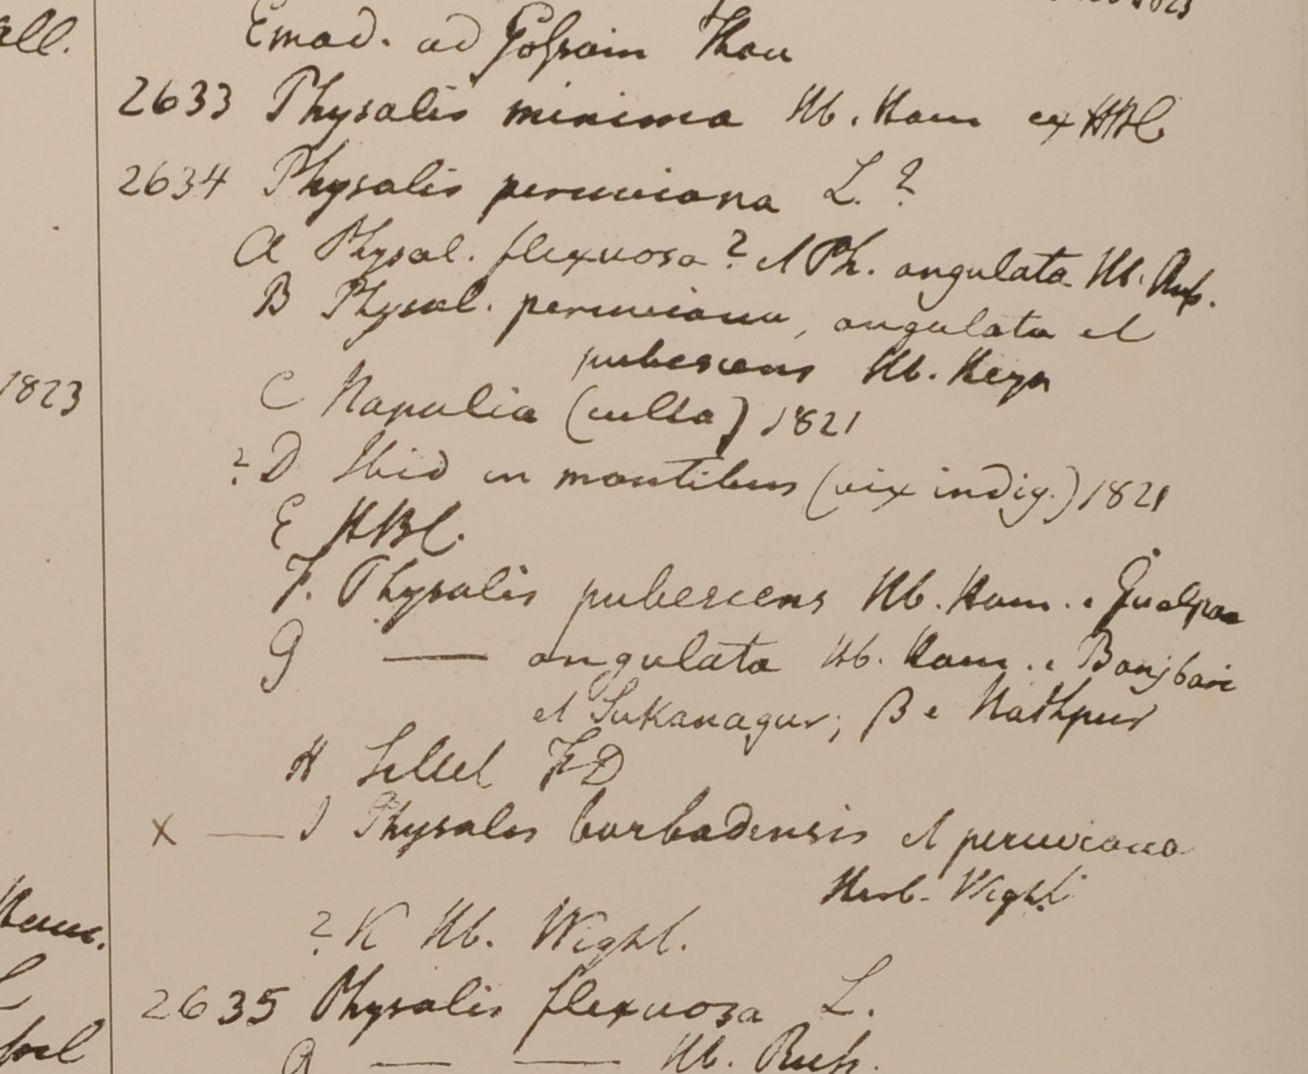 all.
1823
Emod. ad Gossain Than
2633 Physalis minima Hb. Ham ex HBC
2634 Physalis peruviana L.?
a Physal. flexuosa? et Ph. angulata Hb. Russ.
B Physal. peruviana, angulata et
pubescens Hb. Heyn
1823
C Napalia (culta) 1821
?D Ibid in montibus (vix indig.) 1821
E HBC.
F. Physalis pubescens Hb. Ham. e Gualpar
G — angulata Hb. Ham. e Banjbari
et Sukanagur; β e Nathpur
H Sillet FD
x — I Physalis barbadensis et peruviana
Herb. Wight
Ham.
?K Hb. Wight.
L
2635 Physalis flexuosa L.
a — — Hb. Russ.